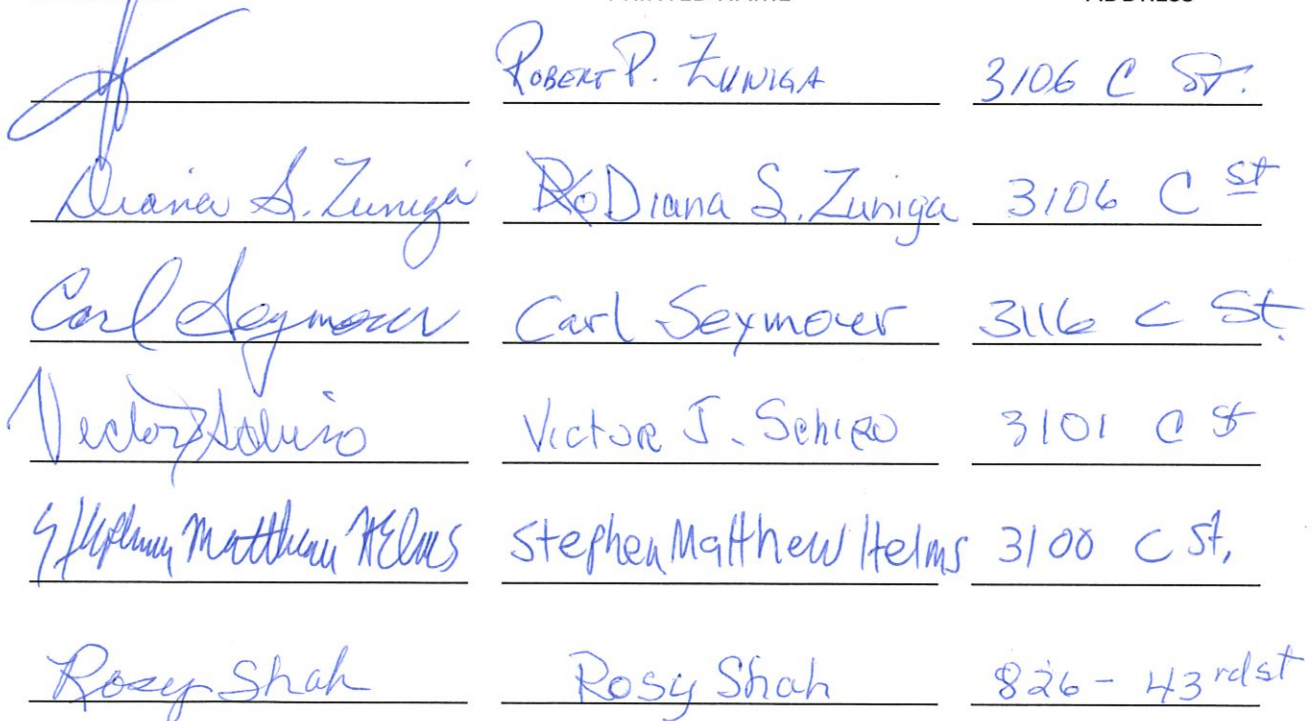 PRINTED NAME ADDRESS
ROBERT P. ZUNIGA 3106 C ST.
Diana S. Zuniga Diana S. Zuniga 3106 C st
Carl Seymour Carl Seymour 3116 C St.
Victor J Schiro Victor J. Schiro 3101 C St
Stephen Matthew Helms Stephen Matthew Helms 3100 C St.
Rosy Shah Rosy Shah 826 - 43rd st